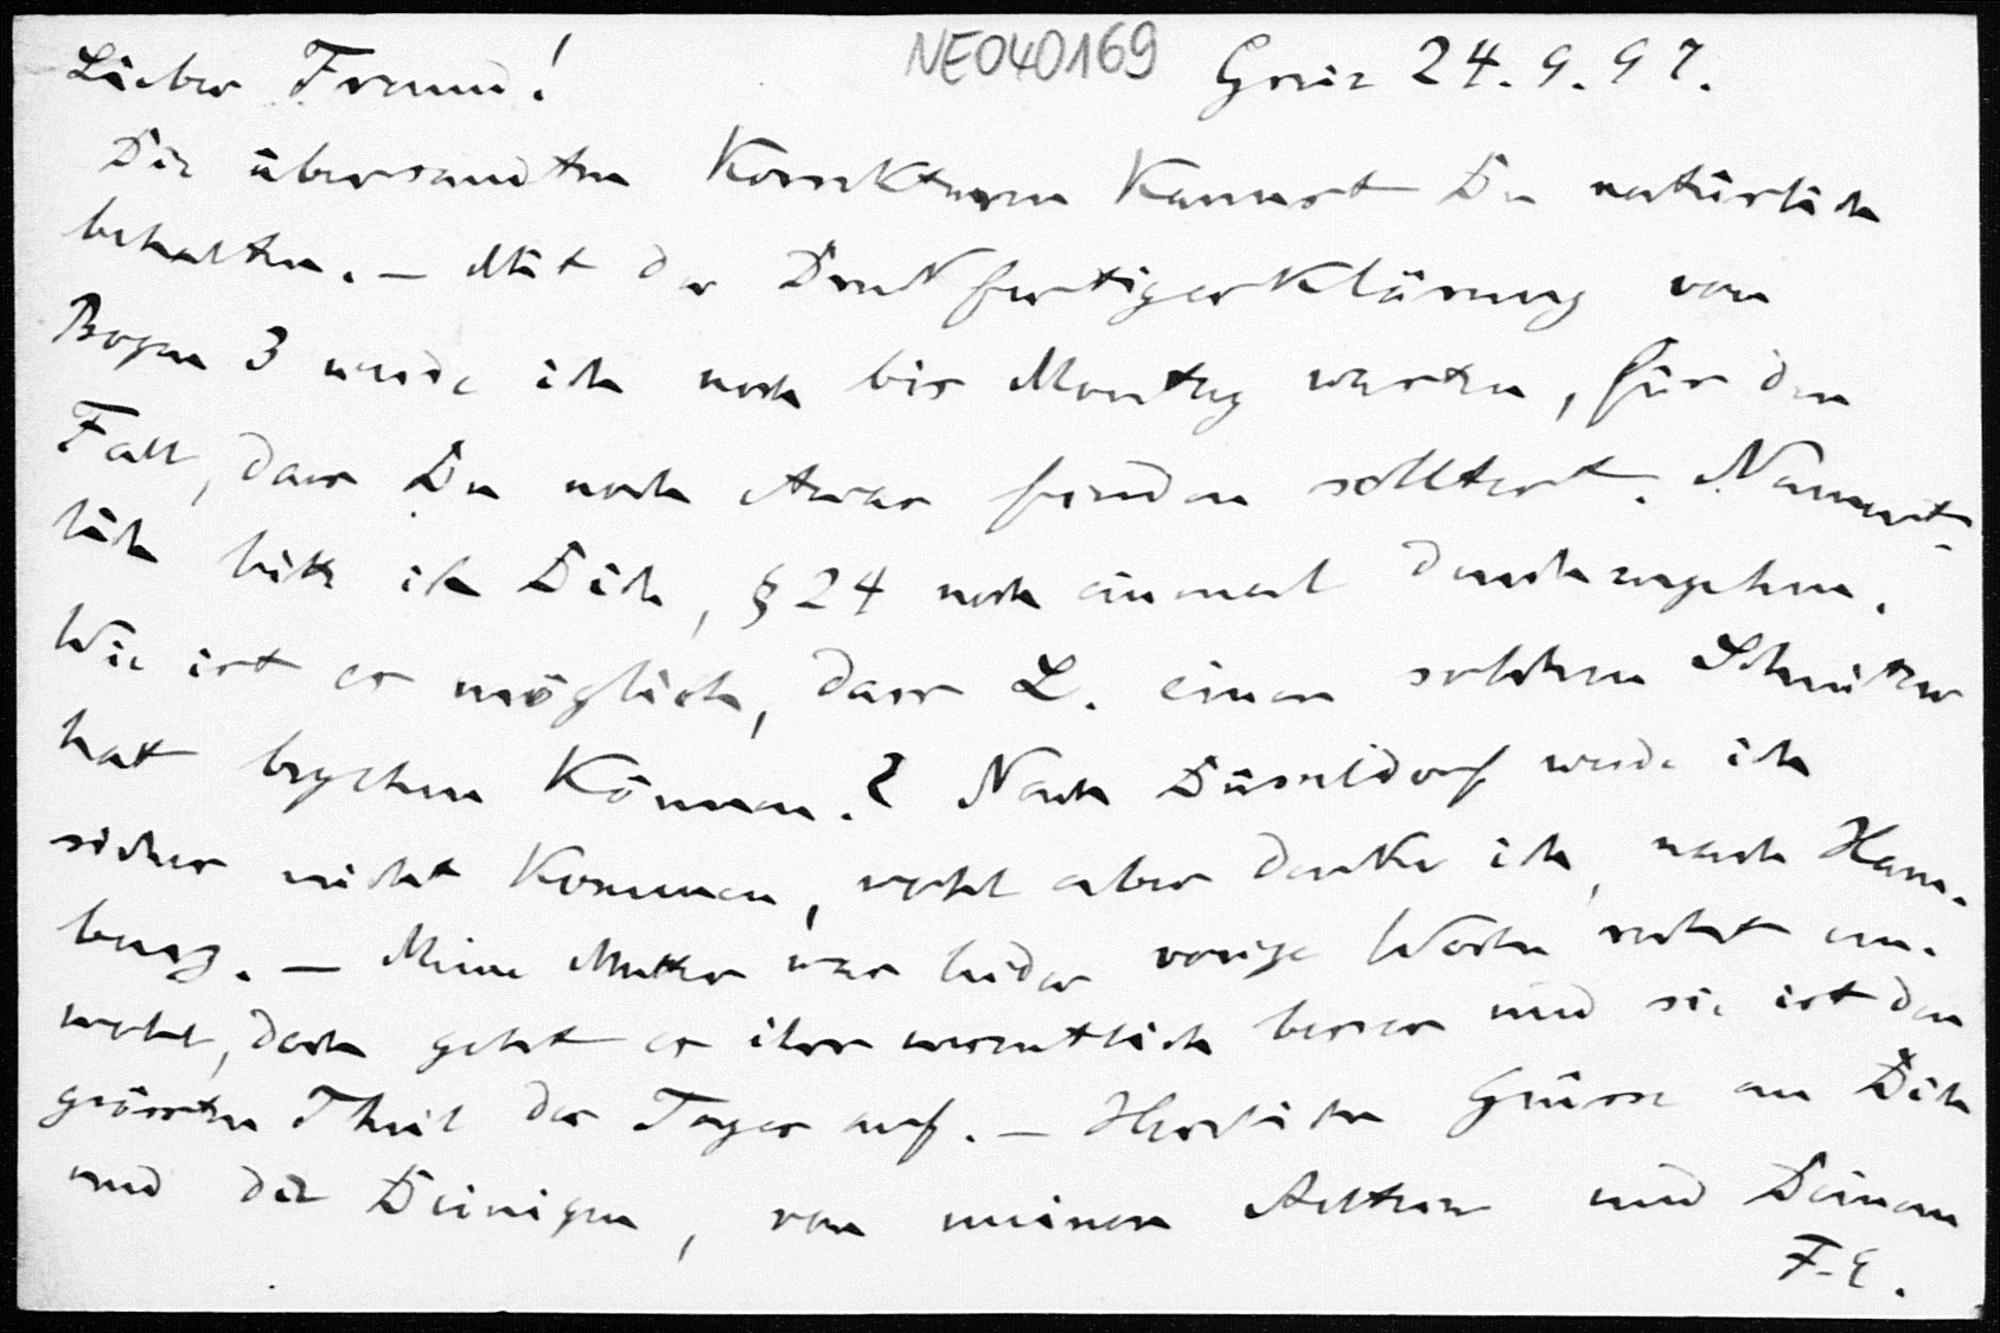 NE040169
Lieber Freund! Greiz 24.9.97.
Die übersandten Korrekturen kannst Du natürlich
behalten. – Mit der Druckfertigerklärung von
Bogen 3 werde ich noch bis Montag warten, für den
Fall, dass Du noch etwas finden solltest. Nament-
lich bitte ich Dich, § 24 noch einmal durchzugehen.
Wie ist es möglich, dass L. einen solchen Schnitzer
hat begehen können.? Nach Düsseldorf werde ich
sicher nicht kommen, wohl aber denke ich, nach Ham-
burg. – Meine Mutter war leider vorige Woche recht un-
wohl, doch geht es ihr wesentlich besser und sie ist den
grössten Theil des Tages auf. – Herzliche Grüsse an Dich
und die Deinigen, von meinen Aeltern und Deinem
F. E.